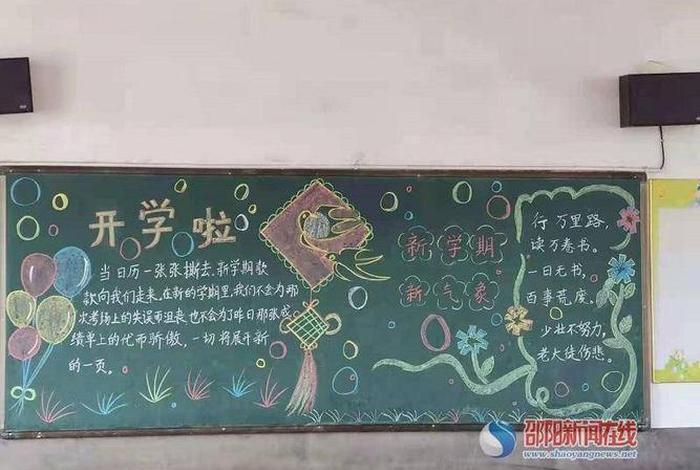 开学啦
当日历一张张撕去,新学期款
款向我们走来,在新的学期里,我们不会为那
次考场上的失误而沮丧,也不会为了昨日那张成
绩单上的优而骄傲,一切将展开新
的一页。
新学期
新气象
行万里路,
读万卷书。
一日无书,
百事荒废。
少壮不努力,
老大徒伤悲。
邵阳新闻在线
www.shaoyangnews.net